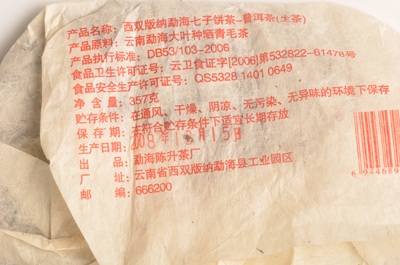 产品名称：西双版纳勐海七子饼茶-普洱茶(生茶)
产品原料：云南勐海大叶种晒青毛茶
产品执行标准：DB53/103-2006
食品卫生许可证号：云卫食证字[2006]第532822-61478号
食品安全生产许可证号：QS5328 1401 0649
净 含 量：357克
贮存条件：在通风、干燥、阴凉、无污染、无异味的环境下保存
保 存 期：在符合贮存条件下适宜长期存放
生产日期：
出 品：勐海陈升茶厂
厂 址：云南省西双版纳勐海县工业园区
邮 编：666200